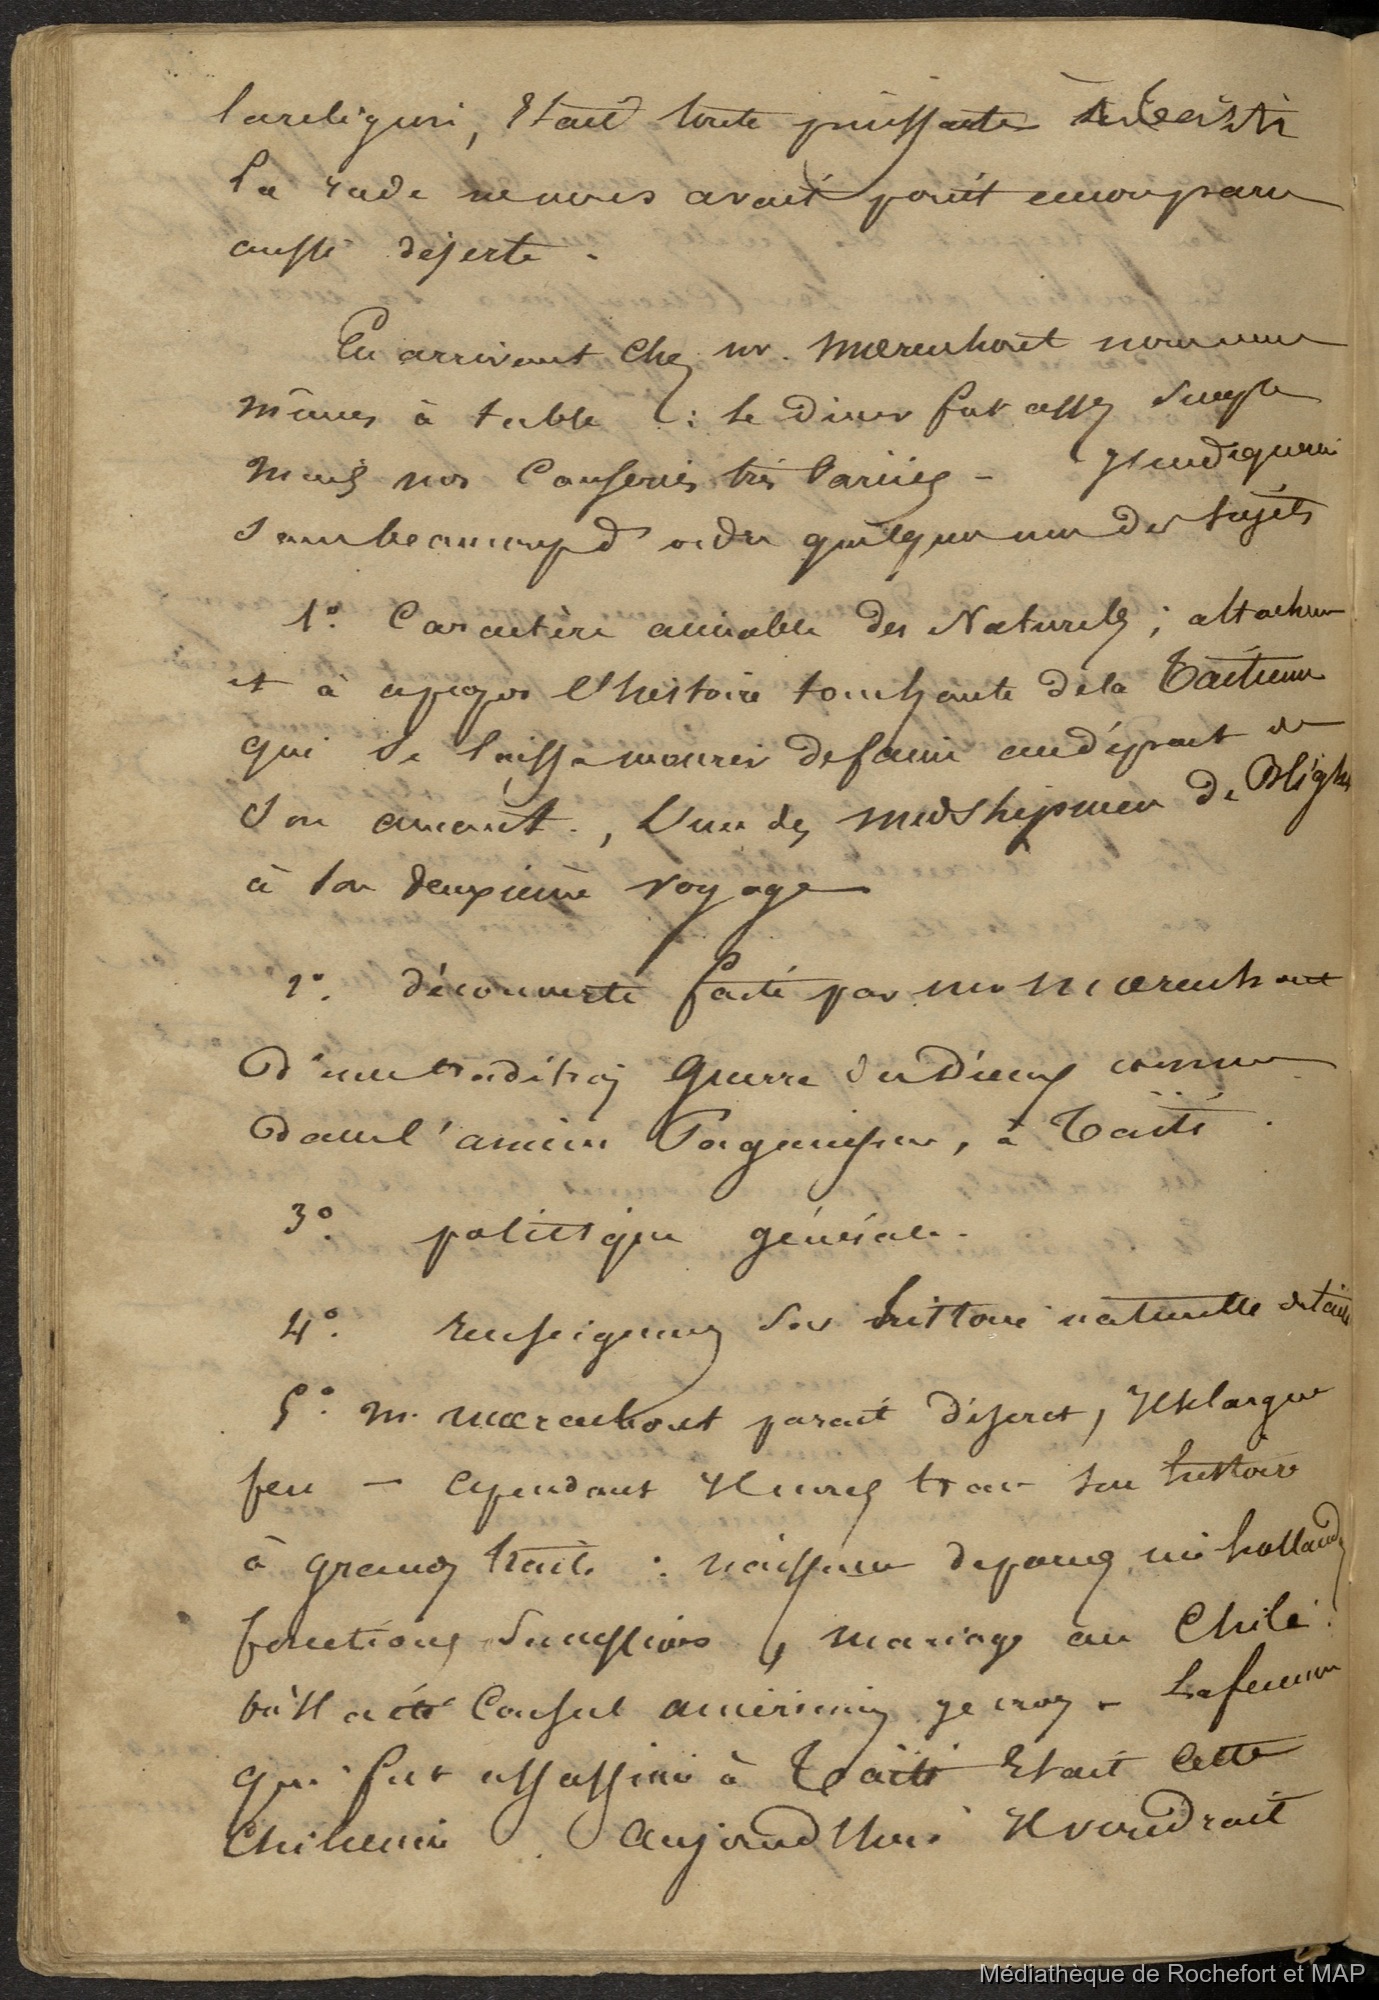 la religion, était toute puissante à Taïti
La rade ne nous avait point encor paru
aussi déserte.
En arrivant chez mr. Mœrenhout nous nous
mîmes à table : le diner fut assez simple
mais nos causeries très variées - J'indiquerai
sans beaucoup d'ordre quelques uns des sujets
1°. Caractère aimable des Naturels ; attachem
et à apropos l'histoire touchante de la Taïtienne
qui se laissa mourir de faim au départ de
son amant, l'un des midshipmen de Bligh
à son deuxième voyage
2°. découverte faite par mr Mœrenhout
d'une tradition guerre des Dieux comme
dans l'ancien Paganisme, à Taïti.
3°. politique générale.
4°. renseignemens sur histoire naturelle de Taïti
5°. M. Mœrenhout parait discret, il est large
peu - cependant il nous trace son histoire
à grands traits : naissance français, mi hollandais
fonctions successives, mariage au Chili
où il a été Consul américain je crois - La femme
qui fut assassinée à Taïti était cette
Chilienne. Aujourd'hui il voudrait
Médiathèque de Rochefort et MAP